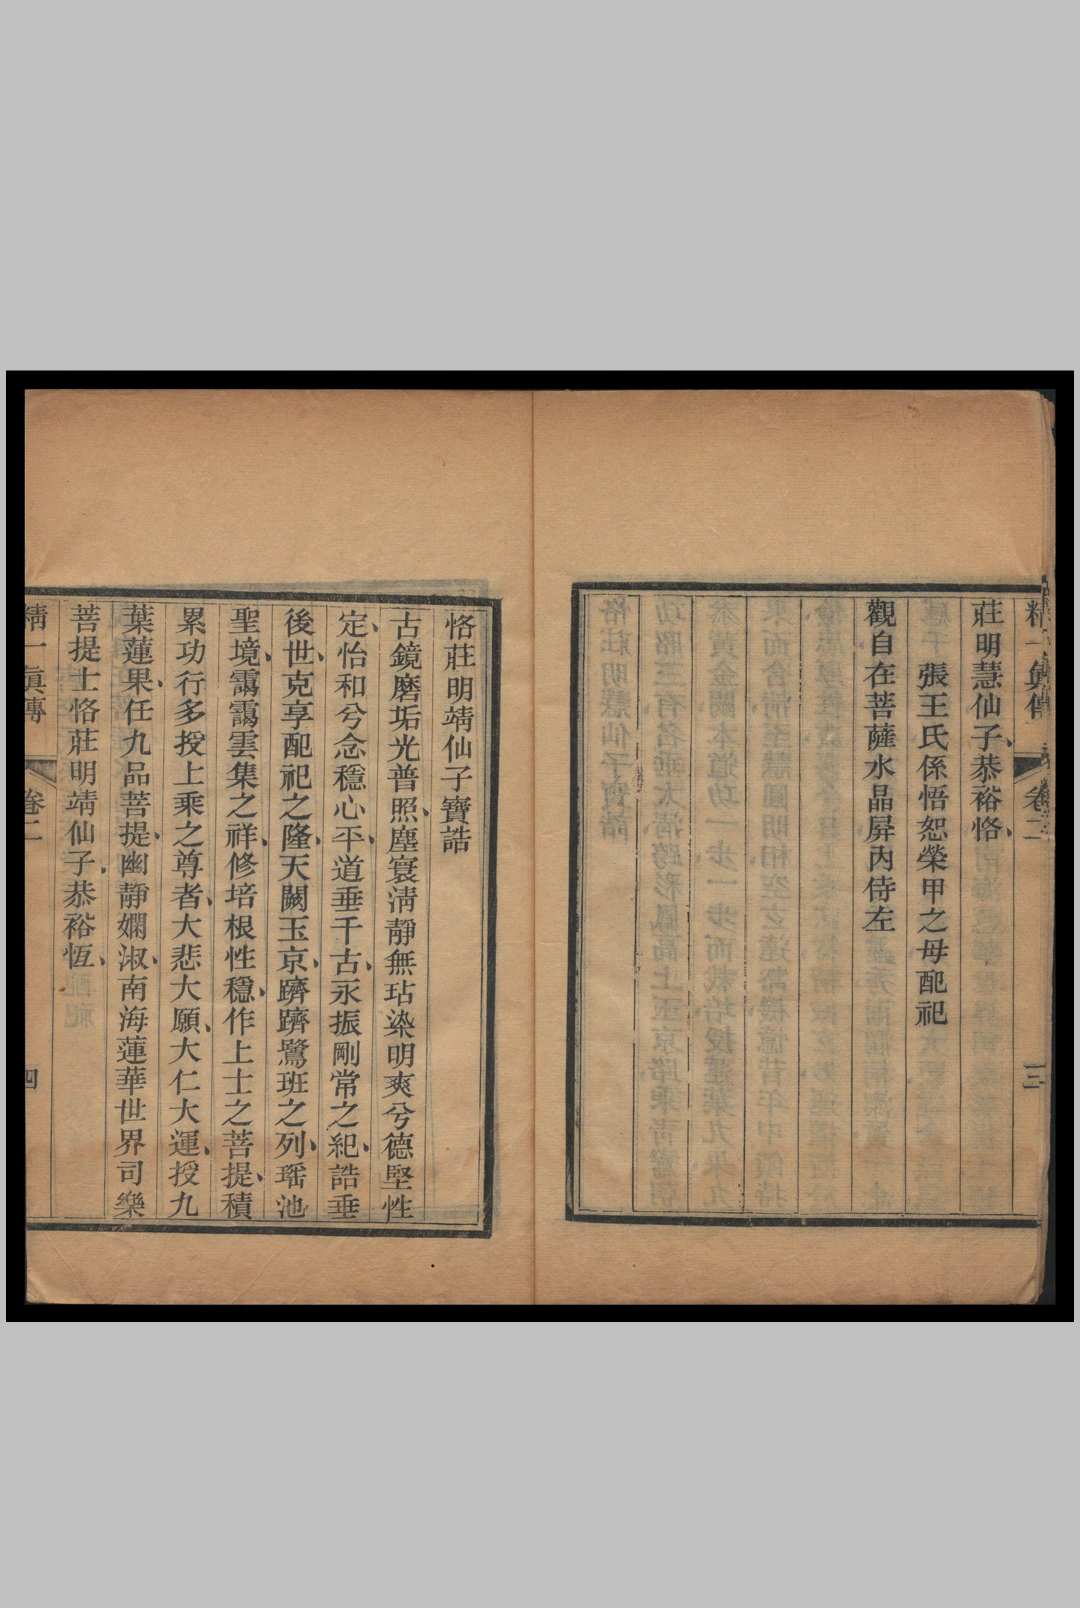 精一眞傳 卷二 三
莊明慧仙子、恭裕恪、
張王氏係悟恕榮甲之母配祀
觀自在菩薩水晶屛內侍左
恪莊明靖仙子寶誥
古鏡磨垢光普照、塵寰淸靜無玷染明爽兮德堅性
定、怡和兮念穩心平、道垂千古、永振剛常之紀、誥垂
後世、克享配祀之隆、天闕玉京、躋躋鷺班之列、瑤池
聖境、靄靄雲集之祥、修培根性穩、作上士之菩提、積
累功行多授上乘之尊者、大悲大願、大仁大運、授九
葉蓮果、任九品菩提、幽靜嫻淑、南海蓮華世界司樂
菩提士恪莊明靖仙子、恭裕恆、
精一眞傳 卷二 四